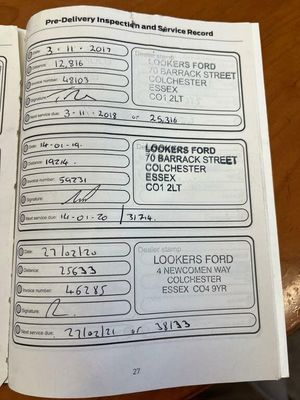 Pre-Delivery Inspection and Service Record
Date: 3-11-2017
Distance: 12,816
Invoice number: 48103
Signature:
Next service due: 3-11-2018 or 25,316
Dealer stamp
LOOKERS FORD
70 BARRACK STREET
COLCHESTER
ESSEX
CO1 2LT
Date: 14-01-19.
Distance: 19214.
Invoice number: 59231
Signature:
Next service due: 14-01-20 / 31714.
LOOKERS FORD
70 BARRACK STREET
COLCHESTER
ESSEX
CO1 2LT
Date: 27/02/20
Distance: 25633
Invoice number: 46285
Signature:
Next service due: 27/02/21 or 38133
Dealer stamp
LOOKERS FORD
4 NEWCOMEN WAY
COLCHESTER
ESSEX CO4 9YR
27